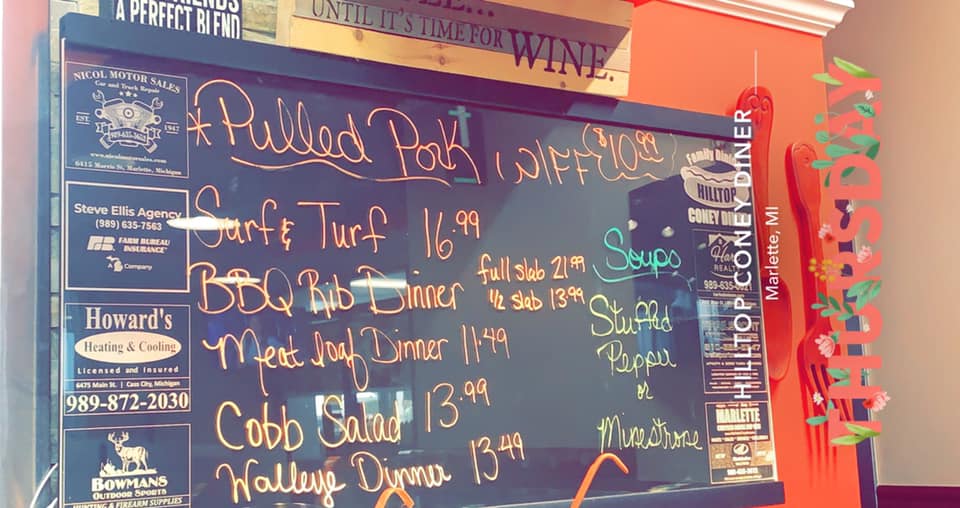 A PERFECT BLEND
UNTIL IT'S TIME FOR WINE.
NICOL MOTOR SALES
Car and Truck Repair
EST. 1947
989-635-3652
www.nicolmotorsales.com
6415 Morris St, Marlette, Michigan
Steve Ellis Agency
(989) 635-7563
FARM BUREAU
INSURANCE
A Company
Howard's
Heating & Cooling
Licensed and Insured
6475 Main St. | Cass City, Michigan
989-872-2030
BOWMANS
OUTDOOR SPORTS
HUNTING & FIREARM SUPPLIES
*Pulled Pork w/FF ($10.99)
Surf & Turf 16.99
BBQ Rib Dinner full slab 21.99
1/2 slab 13.99
Meat loaf Dinner 11.49
Cobb Salad 13.99
Walleye Dinner 13.49
Soups
Stuffed
Pepper
or
Minestrone
HILLTOP
CONEY
MARLETTE
HILLTOP CONEY DINER
Marlette, MI
THURSDAY